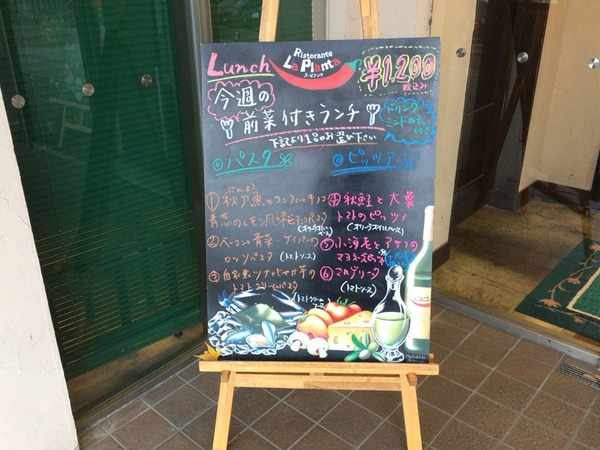 Lunch
Ristorante
La Pianta
ラ・ピアンタ
¥1,200
税込み
今週の
前菜付きランチ
ドリンク
ミニドルチェ
付き
下記より1品お選び下さい
◎パスタ
◎ピッツア
①秋刀魚のコンフィとキノコ
青葱のレモン風味
(オイルソース)
②ベーコンと青菜・ケイパーの
ロッソパスタ (トマトソース)
③自家製ツナとじゃが芋の
トマトクリームパスタ
(トマトクリームソース)
④秋鮭と大葉
トマトのピッツァ
(オリーブオイルベース)
⑤小海老とアサリの
マヨネーズピッツァ
⑥マルゲリータ
(トマトソース)